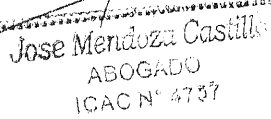 Jose Mendoza Castillo
ABOGADO
ICAC N° 4737